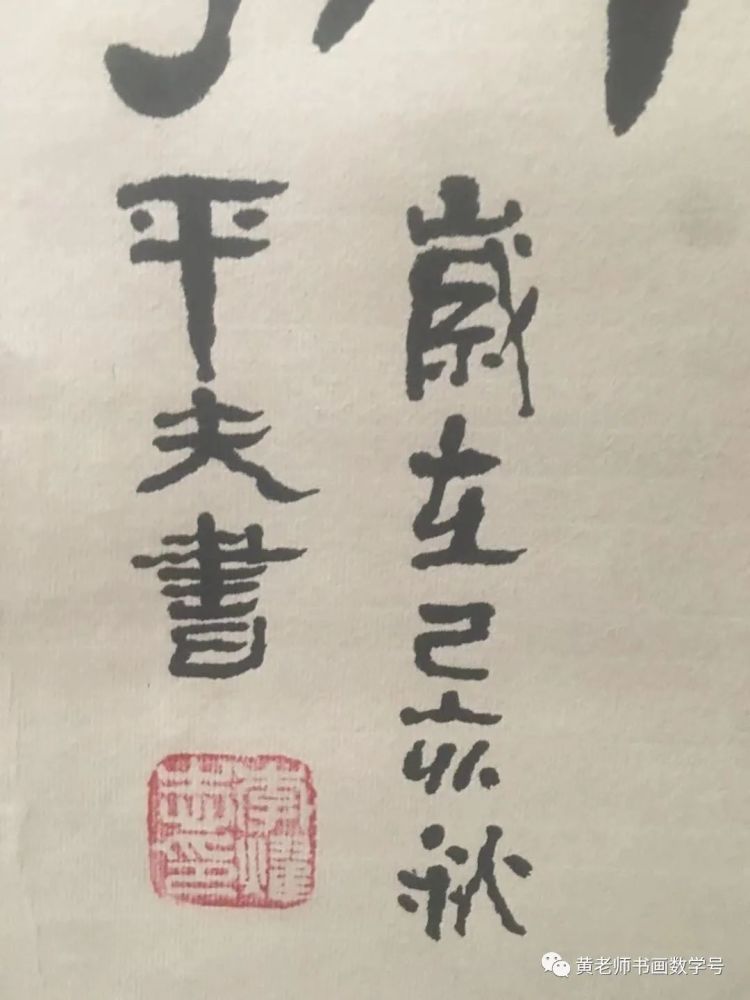 歲在己亥秋
平夫書
黄老师书画数学号